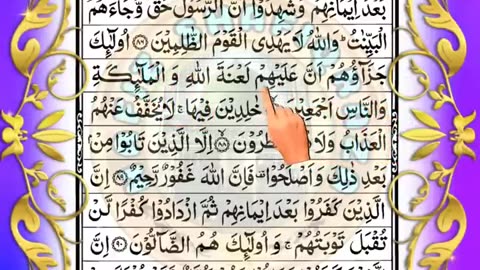 بَعْدَ اِيْمَانِهِمْ وَشَهِدُوْۤا اَنَّ الرَّسُوْلَ حَقٌّ وَّجَآءَهُمُ
الْبَيِّنٰتُ ؕ وَاللّٰهُ لَا يَهْدِى الْقَوْمَ الظّٰلِمِيْنَ ﴿۸۶﴾ اُولٰٓئِكَ
جَزَآؤُهُمْ اَنَّ عَلَيْهِمْ لَعْنَةَ اللّٰهِ وَ الْمَلٰٓئِكَةِ
وَالنَّاسِ اَجْمَعِيْنَ خٰلِدِيْنَ فِيْهَا ۚ لَا يُخَفَّفُ عَنْهُمُ
الْعَذَابُ وَلَا ﴿۸۸﴾ اِلَّا الَّذِيْنَ تَابُوْا مِنْۢ
بَعْدِ ذٰلِكَ وَاَصْلَحُوْا ۫ فَاِنَّ اللّٰهَ غَفُوْرٌ رَّحِيْمٌ ﴿۸۹﴾ اِنَّ
الَّذِيْنَ كَفَرُوْا بَعْدَ اِيْمَانِهِمْ ثُمَّ ازْدَادُوْا كُفْرًا لَّنْ
تُقْبَلَ تَوْبَتُهُمْ ۚ وَ اُولٰٓئِكَ هُمُ الضَّآلُّوْنَ ﴿۹۰﴾ اِنَّ